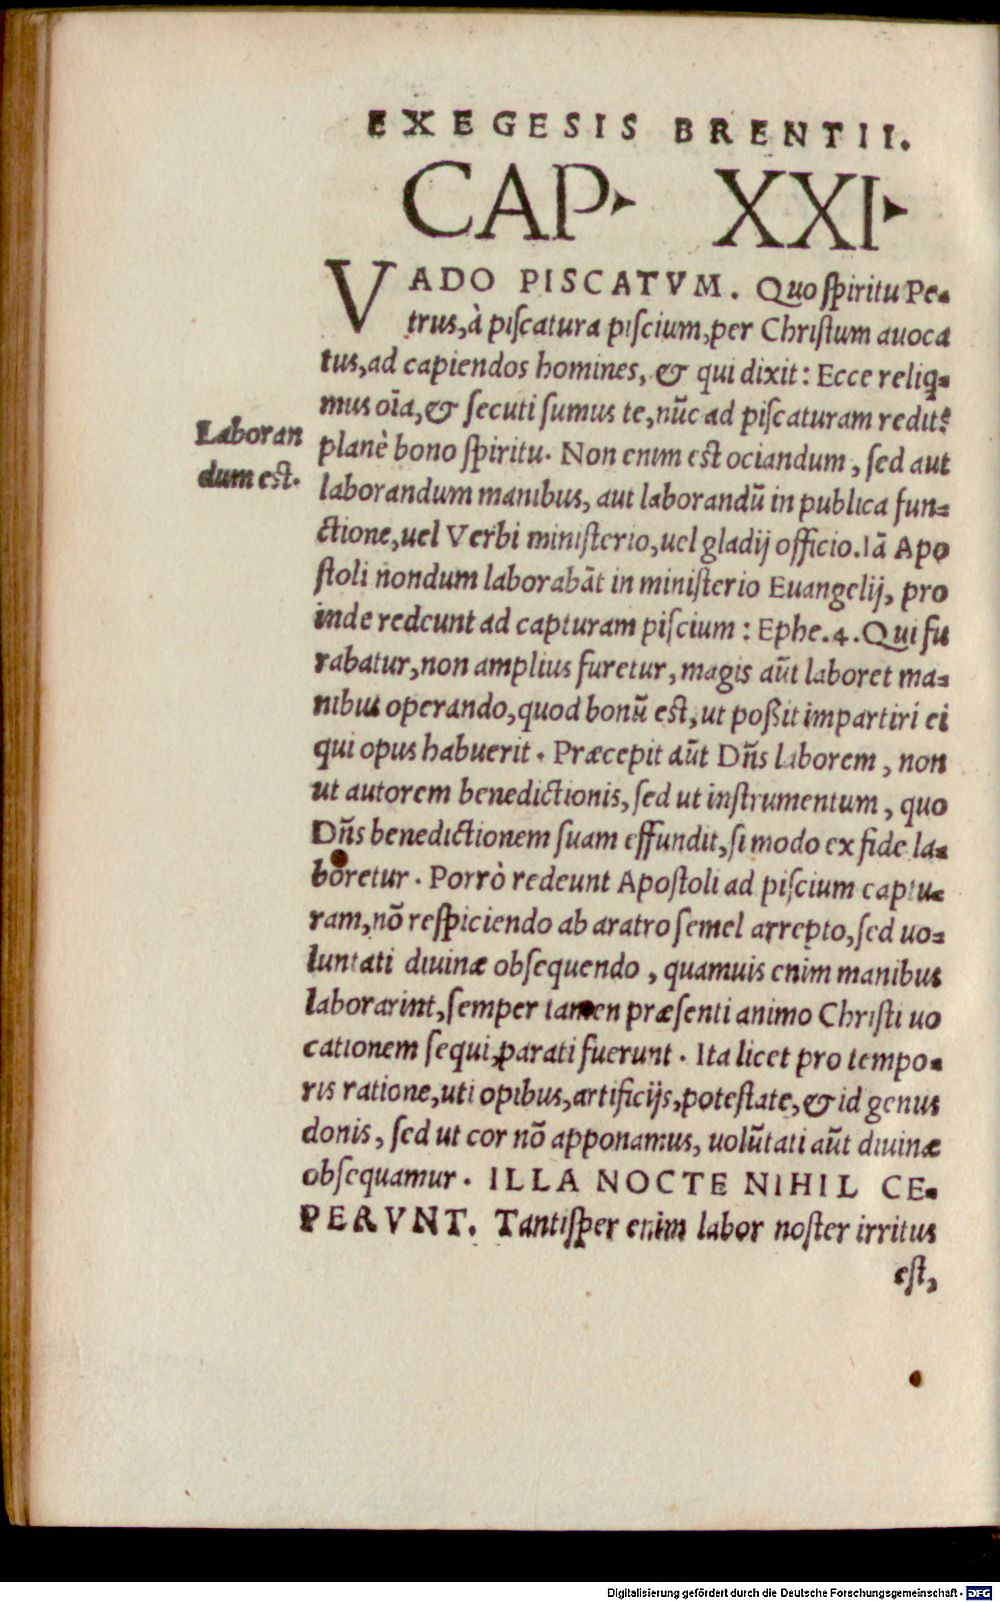 EXEGESIS BRENTII.
CAP. XXI.
VADO PISCATVM. Quo ſpiritu Pe-
trus, à piſcatura piſcium, per Chriſtum auoca
tus, ad capiendos homines, & qui dixit: Ecce reliq-
mus oīa, & ſecuti ſumus te, nūc ad piſcaturam redit?
Laboran
dum eſt.
planè bono ſpiritu. Non enim eſt ociandum, ſed aut
laborandum manibus, aut laborandū in publica fun-
ctione, uel Verbi miniſterio, uel gladij officio. Iā Apo
ſtoli nondum laborabāt in miniſterio Euangelij, pro
inde redeunt ad capturam piſcium: Ephe. 4. Qui fu
rabatur, non amplius furetur, magis aūt laboret ma-
nibus operando, quod bonū eſt, ut poßit impartiri ei
qui opus habuerit. Præcepit aūt Dñs laborem, non
ut autorem benedictionis, ſed ut inſtrumentum, quo
Dñs benedictionem ſuam effundit, ſi modo ex fide la-
boretur. Porrò redeunt Apoſtoli ad piſcium captu-
ram, nō reſpiciendo ab aratro ſemel arrepto, ſed uo-
luntati diuinæ obſequendo, quamuis enim manibus
laborarint, ſemper tamen præſenti animo Chriſti uo
cationem ſequi, parati fuerunt. Ita licet pro tempo-
ris ratione, uti opibus, artificijs, poteſtate, & id genus
donis, ſed ut cor nō apponamus, uolūtati aūt diuinæ
obſequamur. ILLA NOCTE NIHIL CE-
PERVNT. Tantiſper enim labor noſter irritus
eſt,
Digitalisierung gefördert durch die Deutsche Forschungsgemeinschaft - DFG